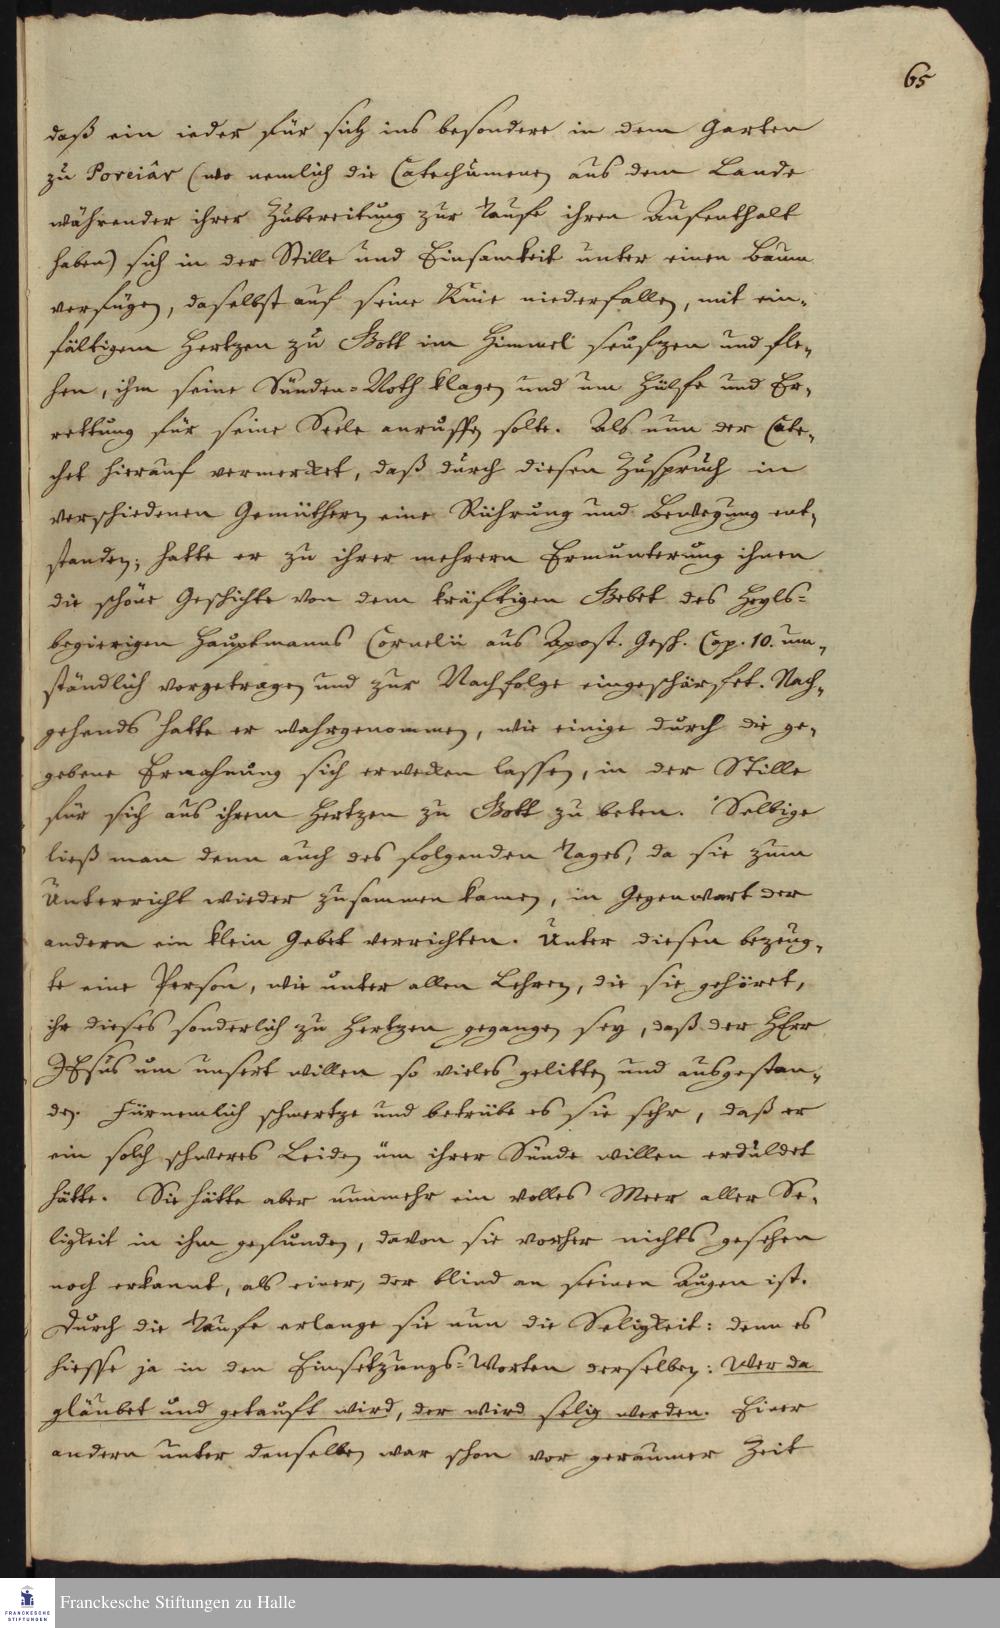 65
daß ein ieder für sich ins besondere in dem Garten
zu Poreiâr (wo nemlich die Catechumenen aus dem Lande
währender ihrer Zubereitung zur Taufe ihren Aufenthalt
haben) sich in der Stille und Einsamkeit unter einen Baum
verfügen, daselbst auf seine Knie niederfallen, mit ein-
fältigem Hertzen zu Gott im Himmel seufzen und fle-
hen, ihm seine Sünden-Noth klagen und um Hülfe und Er-
rettung für seine Seele anruffen solte. Als nun der Cate-
chet hierauf vermercket, daß durch diesen Zuspruch in
verschiedenen Gemüthern eine Rührung und Bewegung ent-
standen; hatte er zu ihrer mehrern Ermunterung ihnen
die schöne Geschichte von dem kräftigen Gebet des Heyls-
begierigen Hauptmanns Cornelii aus Apost. Gesch. Cap. 10. um-
ständlich vorgetragen und zur Nachfolge eingeschärfet. Nach-
gehends hatte er wahrgenommen, wie einige durch die ge-
gebene Ermahnung sich erwecken lassen, in der Stille
für sich aus ihrem Hertzen zu Gott zu beten. Selbige
ließ man denn auch des folgenden Tages, da sie zum
Unterricht wieder zusammen kamen, in Gegenwart der
andern ein klein Gebet verrichten. Unter diesen bezeug-
te eine Person, wie unter allen Lehren, die sie gehöret,
ihr dieses sonderlich zu Hertzen gegangen sey, daß der HErr
JEsus um unsert willen so vieles gelitten und ausgestan-
den. Fürnemlich schmertze und betrübe es sie sehr, daß er
ein solch schweres Leiden um ihrer Sünde willen erduldet
hätte. Sie hätte aber nunmehr ein volles Meer aller Se-
ligkeit in ihm gefunden, davon sie vorher nichts gesehen
noch erkannt, als einer, der blind an seinen Augen ist.
Durch die Taufe erlange sie nun die Seligkeit: denn es
hiesse ja in den Einsetzungs-Worten derselben: Wer da
gläubet und getauft wird, der wird selig werden. Einer
andern unter denselben war schon vor geraumer Zeit
FRANCKESCHE
STIFTUNGEN
Franckesche Stiftungen zu Halle